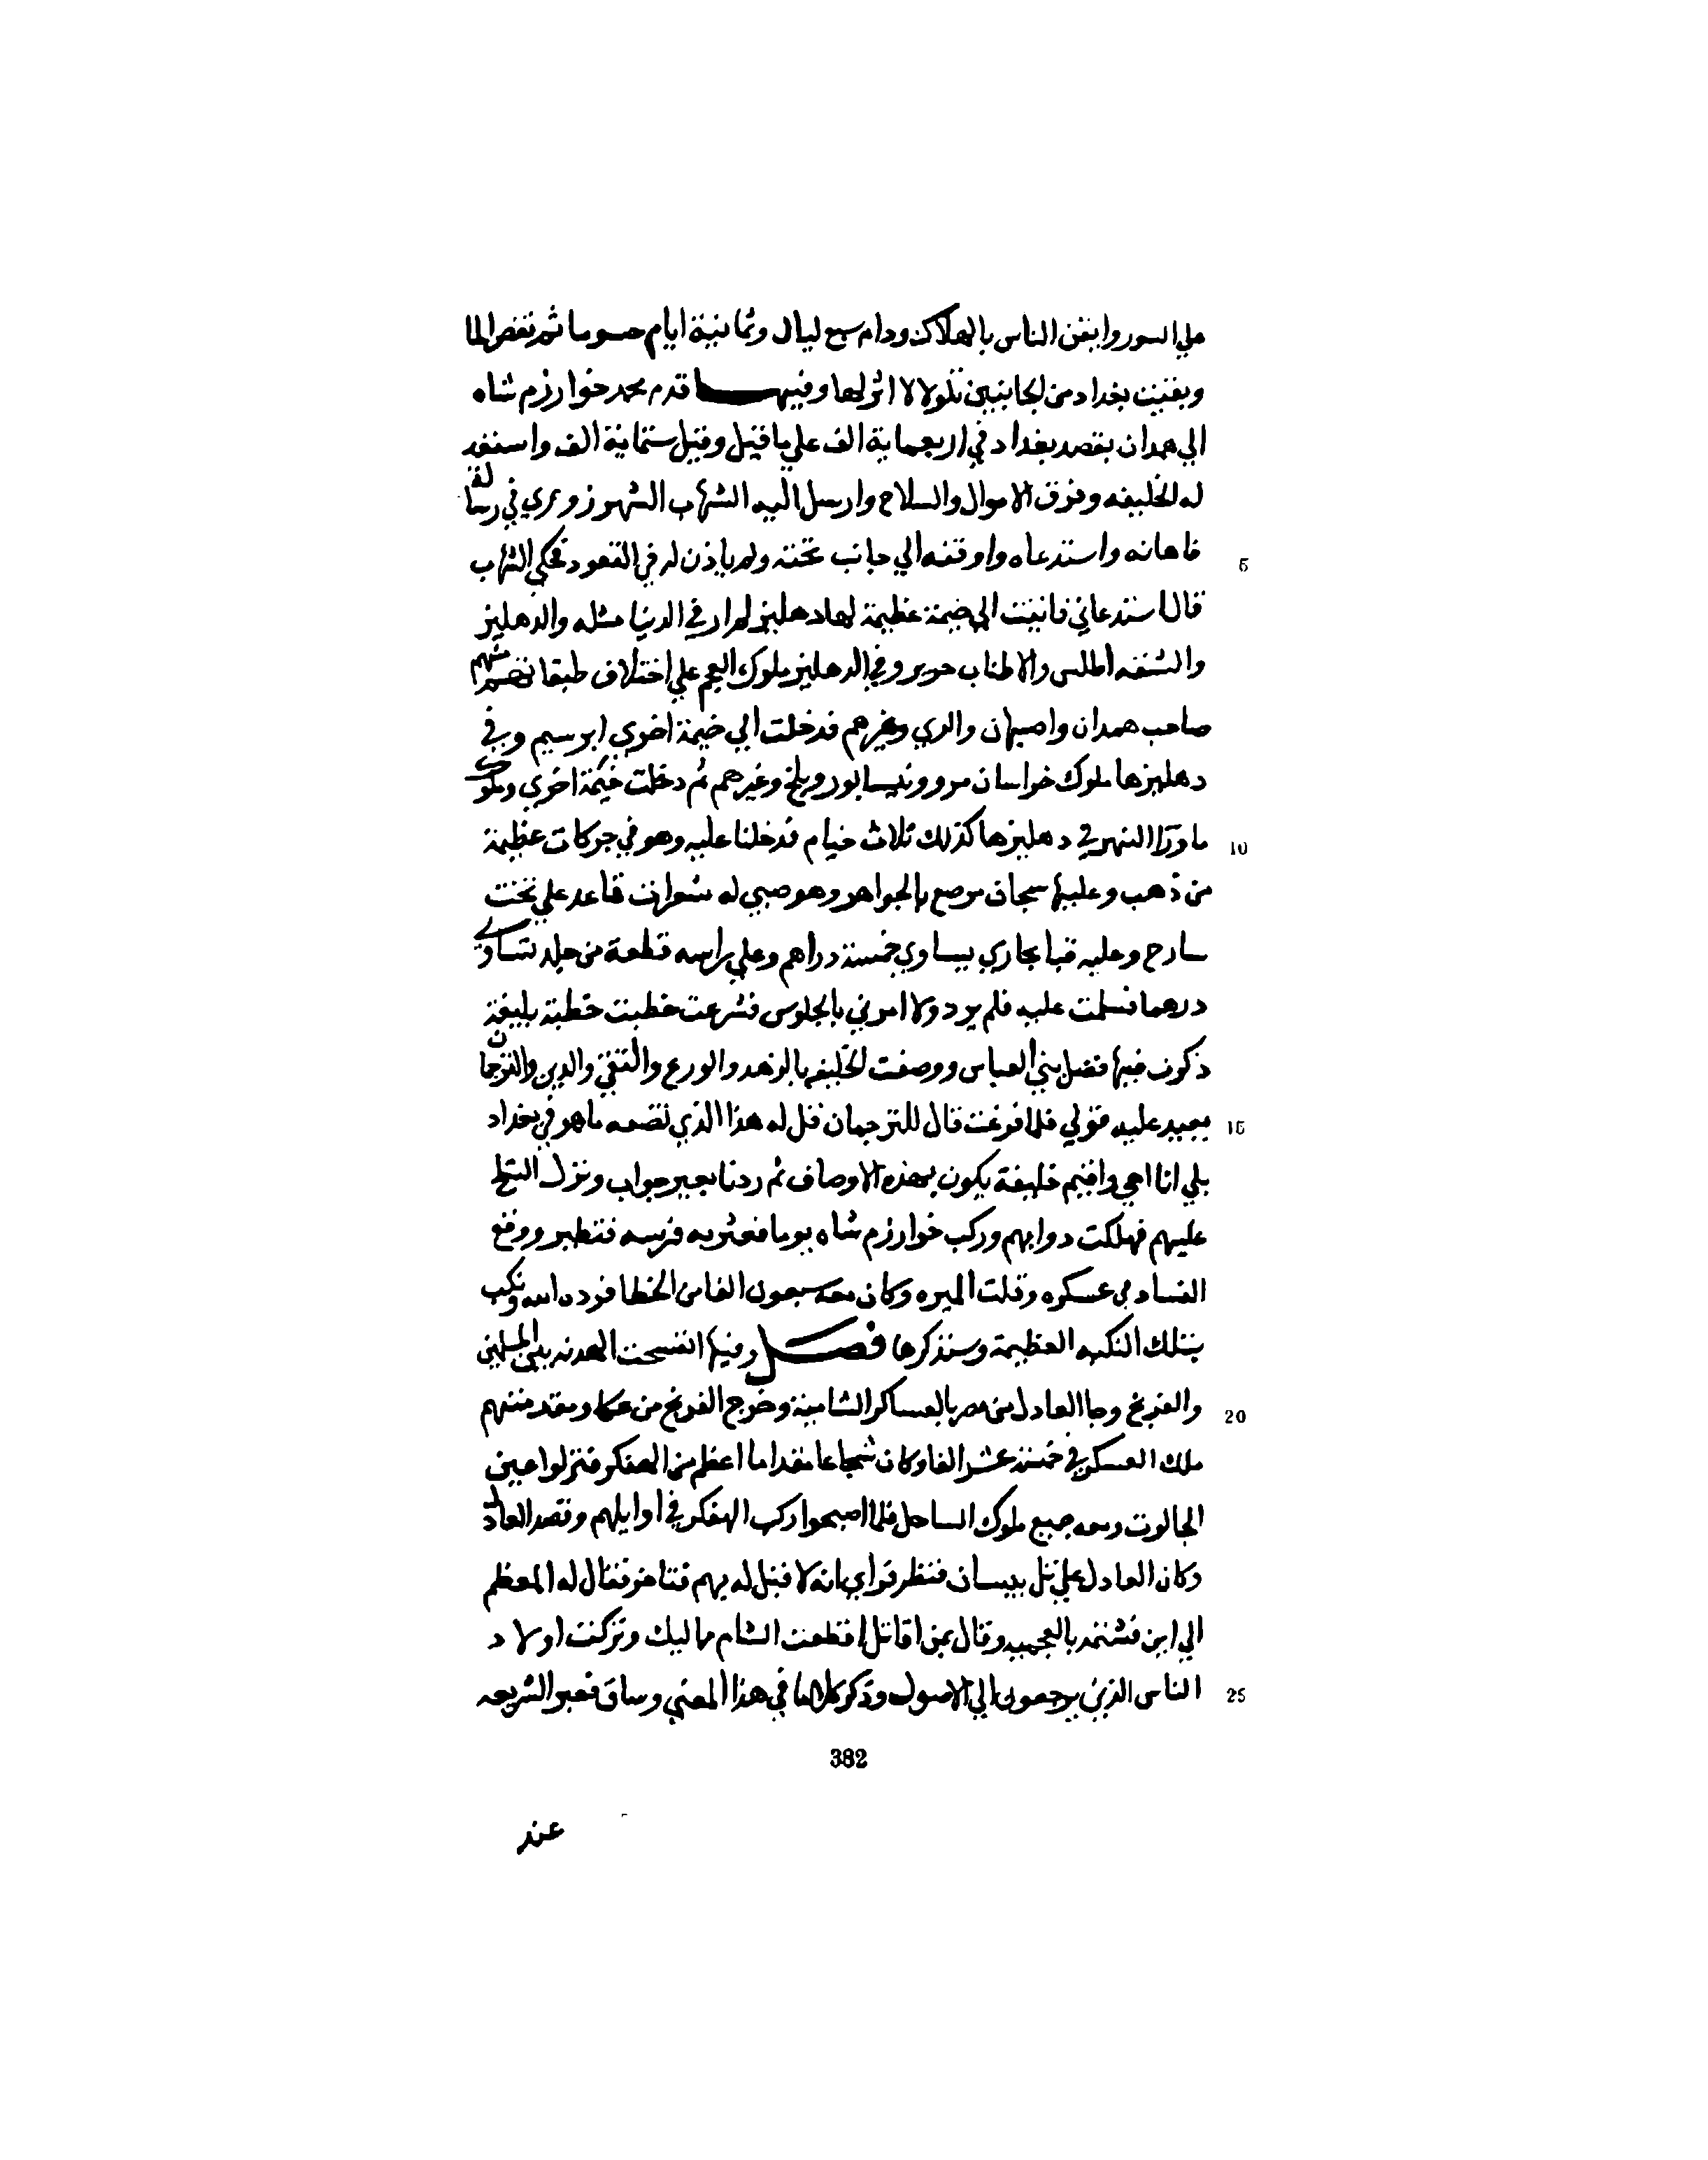 علي السور وايقن الناس بالهلاك ودام سبع ليال وثمانية ايام حسوما ثم نقص الما
وبقيت بغداد من الجانبين تلولا لا اثر لها وفيها قدم محمد خوارزم شاه
الي همدان بقصد بغداد في اربعماية الف علي ما قيل وقيل ستماية الف واستعد
له الخليفه وفرق الاموال والسلاح وارسل اليه الشهاب السهروردي في رسالة
فاهانه واستدعاه واوقفه الي جانب تخته ولم ياذن له في القعود فحكي الشهاب
قال استدعاني فاتيت الي خيمة عظيمة لها دهليز لم ار في الدنيا مثله والدهليز
والشقه اطلس والاطناب حرير وفي الدهليز ملوك العجم علي اختلاف طبقاتهم منهم
صاحب همدان واصبهان والري وغيرهم فدخلت الي خيمة اخري ابرسيم وفي
دهليزها ملوك خراسان مرو ونيسابور وبلخ وغيرهم ثم دخلت خيمة اخري وملوك
ماورا النهر في دهليزها كذلك ثلاث خيام فدخلنا عليه وهو في خركات عظيمة
من ذهب وعليها سجاف مرصع بالجواهر وهو صبي له شعرات قاعد علي تخت
سادج وعليه قبا بخاري يساوي خمسة دراهم وعلي راسه قطعة من جلد تساوي
درهما فسلمت عليه فلم يرد ولا امرني بالجلوس فشرعت خطبت خطبة بليغة
ذكرت فيها فضل بني العباس ووصفت الخليفه بالزهد والورع والتقي والدين والترجمان
يعيد عليه قولي فلما فرغت قال للترجمان قل له هذا الذي تصفه ما هو في بغداد
بلي انا اجي واقيم خليفة يكون بهذه الاوصاف ثم ردنا بغير جواب ونزل الثلج
عليهم فهلكت دوابهم وركب خوارزم شاه يوما فعثر به فرسه فتطير ووقع
الفساد في عسكره وقلت الميره وكان معه سبعون الفا من الخطا فرده الله ونكب
بتلك النكبه العظيمة وسنذكرها فصل وفيها انفسخت الهدنه بين المسلمين
والفرنج وجا العادل من مصر بالعساكر الشامية وخرج الفرنج من عكا ومقدمتهم
ملك العسكر في خمسة عشر الفا وكان شجاعا مقداما اعظم من الهنكر فنزلوا عين
الجالوت ومعه جميع ملوك الساحل فلما اصبحوا ركب الهنكر في اوايلهم وقصد العادل
وكان العادل علي تل بيسان فنظر فراي انه لا قبل له بهم فتاخر فقال له المعظم
الي اين فشتمه بالعجميه وقال بمن اقاتل اقطعت الشام مماليك وتركت اولاد
الناس الذين يرجعون الي الاصول وذكر كلاما في هذا المعني وساق فعبر الشريعه
382
عند
5
10
15
20
25